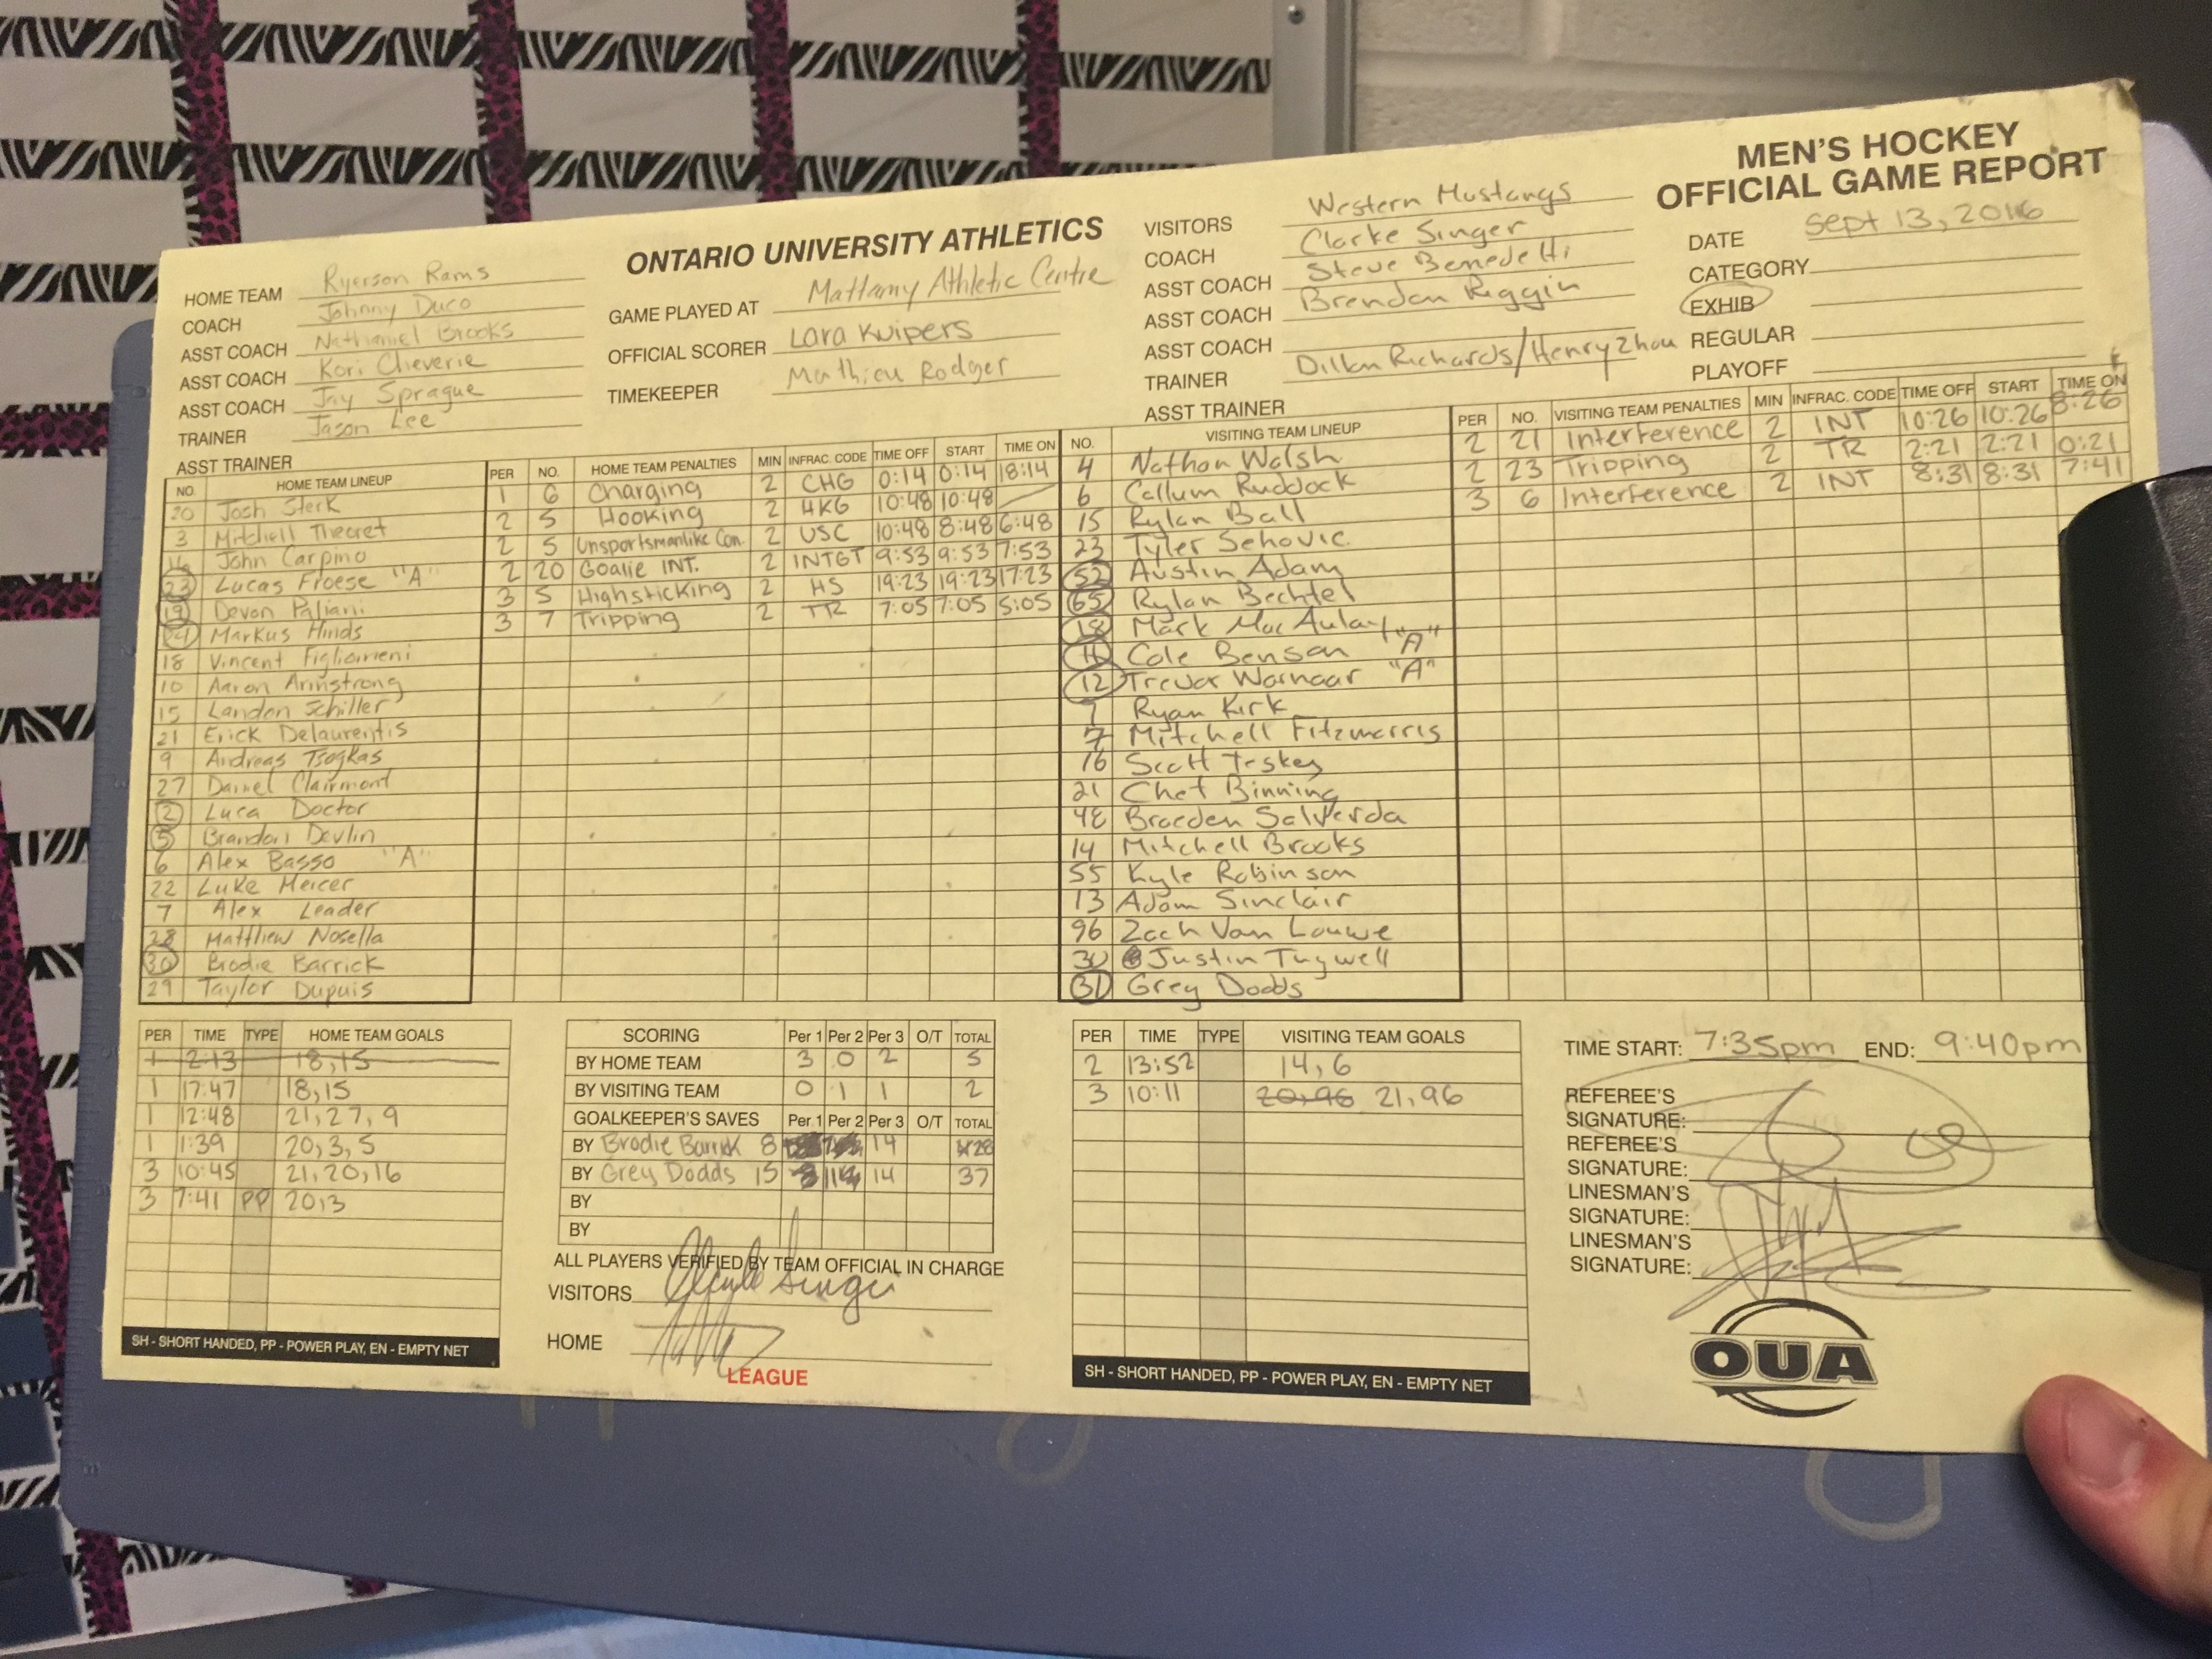 MEN'S HOCKEY
OFFICIAL GAME REPORT
ONTARIO UNIVERSITY ATHLETICS
HOME TEAM Ryerson Rams
COACH Johnny Duco
ASST COACH Nathaniel Brooks
ASST COACH Kori Cheverie
ASST COACH Jay Sprague
TRAINER Jason Lee
ASST TRAINER
GAME PLAYED AT Mattamy Athletic Centre
OFFICIAL SCORER Lara Kuipers
TIMEKEEPER Mathieu Rodger
VISITORS Western Mustangs
COACH Clarke Singer
ASST COACH Steve Benedetti
ASST COACH Brendan Riggin
ASST COACH
TRAINER Dillon Richards/Henry Zhou
ASST TRAINER
DATE Sept 13, 2016
CATEGORY
EXHIB
REGULAR
PLAYOFF
NO. HOME TEAM LINEUP
20 Josh Sterk
3 Mitchell Theoret
16 John Carpino
23 Lucas Froese "A"
19 Devon Paliani
24 Markus Hinds
18 Vincent Figliomeni
10 Aaron Armstrong
15 Landon Schiller
21 Erick Delaurentis
9 Andreas Tsogkas
27 Daniel Clairmont
2 Luca Doctor
5 Brandon Devlin
6 Alex Basso "A"
22 Luke Mercer
7 Alex Leader
28 Matthew Nosella
30 Brodie Barrick
29 Taylor Dupuis
PER NO. HOME TEAM PENALTIES MIN INFRAC. CODE TIME OFF START TIME ON
1 6 Charging 2 CHG 0:14 0:14 18:14
2 5 Hooking 2 HKG 10:48 10:48
2 5 Unsportsmanlike Con. 2 USC 10:48 8:48 6:48
2 20 Goalie INT. 2 INTGT 9:53 9:53 7:53
3 5 Highsticking 2 HS 19:23 19:23 17:23
3 7 Tripping 2 TR 7:05 7:05 5:05
NO. VISITING TEAM LINEUP
4 Nathan Walsh
6 Callum Ruddock
15 Rylan Ball
23 Tyler Sehovic
52 Austin Adam
65 Rylan Bechtel
18 Mark MacAulay "A"
11 Cole Benson "A"
12 Trevor Warnaar "A"
Ryan Kirk
7 Mitchell Fitzmorris
16 Scott Teskey
21 Chet Binning
48 Braeden Salverda
14 Mitchell Brooks
55 Kyle Robinson
13 Adam Sinclair
96 Zach Van Louwe
30 Justin Tugwell
31 Greg Dodds
PER NO. VISITING TEAM PENALTIES MIN INFRAC. CODE TIME OFF START TIME ON
2 21 Interference 2 INT 10:26 10:26 8:26
2 23 Tripping 2 TR 2:21 2:21 0:21
3 6 Interference 2 INT 8:31 8:31 7:41
PER TIME TYPE HOME TEAM GOALS
1 2:13 18,15
1 17:47 18,15
1 12:48 21,27,9
1 1:39 20,3,5
3 10:45 21,20,16
3 7:41 PP 20,3
SH - SHORT HANDED, PP - POWER PLAY, EN - EMPTY NET
SCORING Per 1 Per 2 Per 3 O/T TOTAL
BY HOME TEAM 3 0 2 5
BY VISITING TEAM 0 1 1 2
GOALKEEPER'S SAVES Per 1 Per 2 Per 3 O/T TOTAL
BY Brodie Barrick 8 14 28
BY Greg Dodds 15 14 37
BY
BY
ALL PLAYERS VERIFIED BY TEAM OFFICIAL IN CHARGE
VISITORS
HOME
LEAGUE
PER TIME TYPE VISITING TEAM GOALS
2 13:52 14,6
3 10:11 20,96 21,96
SH - SHORT HANDED, PP - POWER PLAY, EN - EMPTY NET
TIME START: 7:35pm END: 9:40pm
REFEREE'S
SIGNATURE:
REFEREE'S
SIGNATURE:
LINESMAN'S
SIGNATURE:
LINESMAN'S
SIGNATURE:
OUA